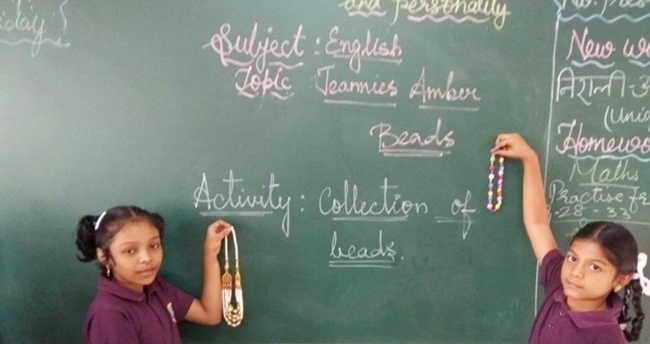 and personality
Subject : English
Topic Jeannies Amber
Beads
Activity : Collection of
beads.
New
निराली
Homewo
Maths
Practise
28 - 33